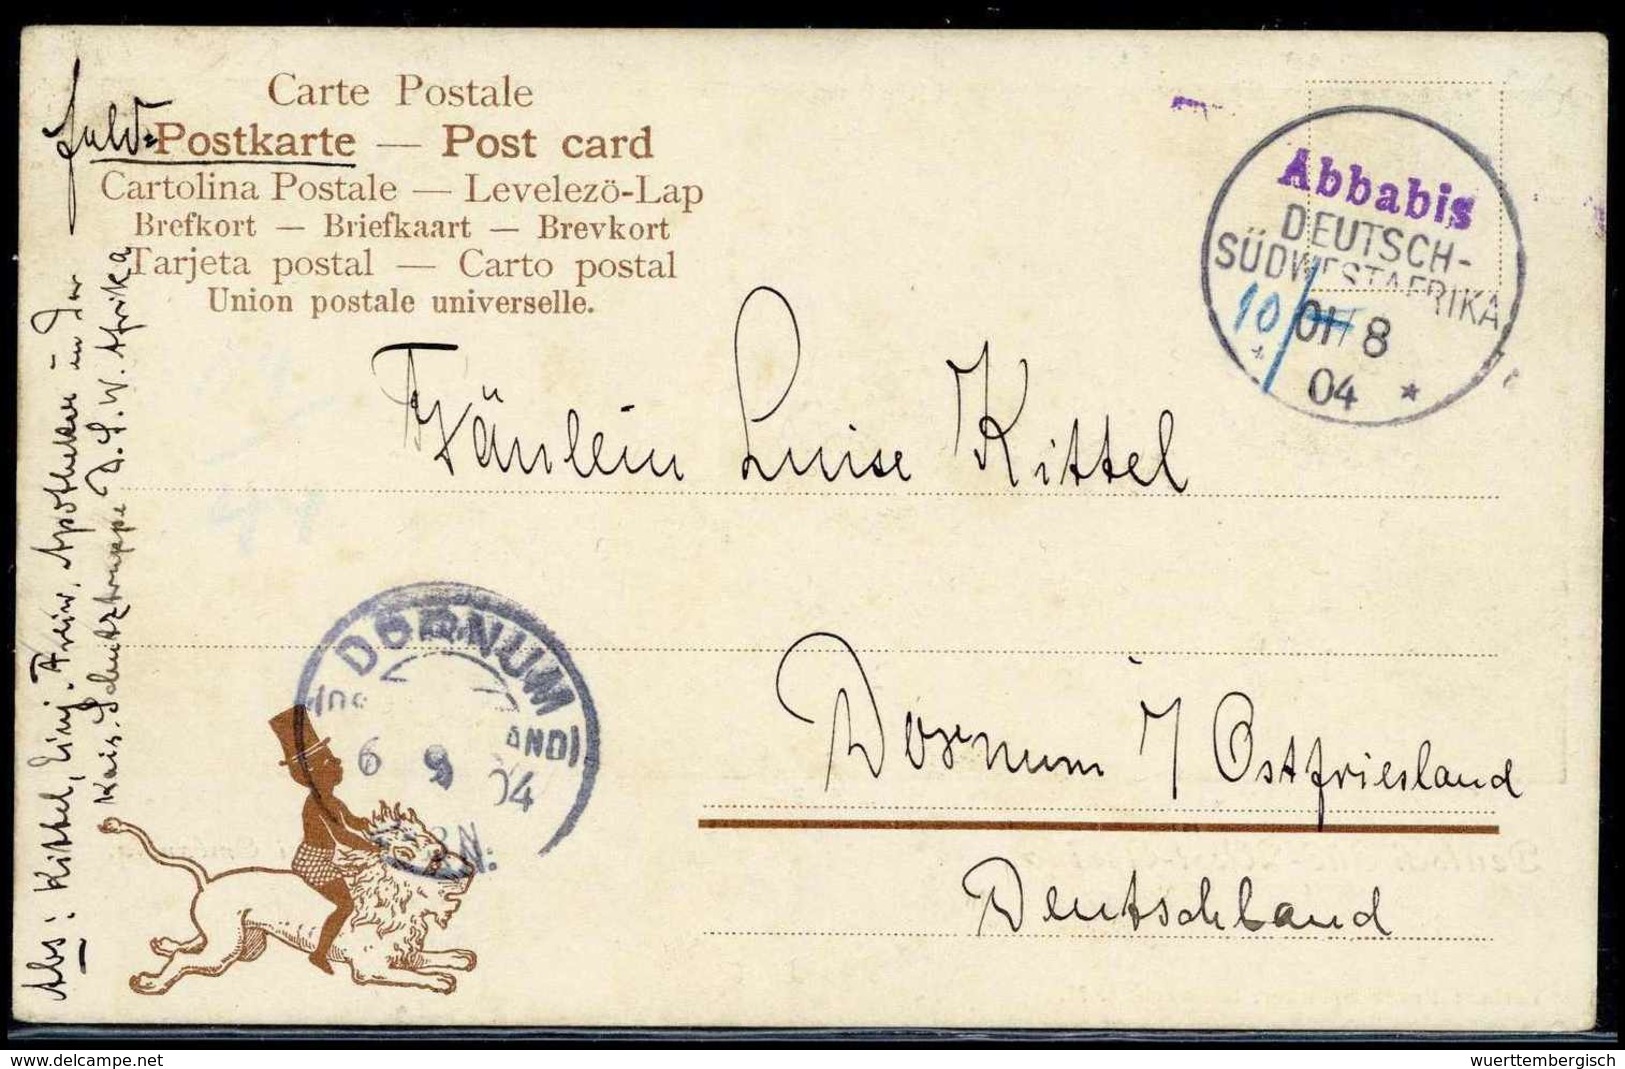 Carte Postale
Feld=Postkarte — Post card
Cartolina Postale — Levelezö-Lap
Brefkort — Briefkaart — Brevkort
Tarjeta postal — Carto postal
Union postale universelle.
Abbabis
DEUTSCH-
SÜDWESTAFRIKA
10/8
04
Fräulein Luise Kittel
DORNUM
6 9 04
Dornum i/Ostfriesland
Deutschland
Abs: Kittel, Einj. Freiw. Apotheker in der
Kais. Schutztruppe D.S.W. Afrika
delcampe.net
wuerttembergisch